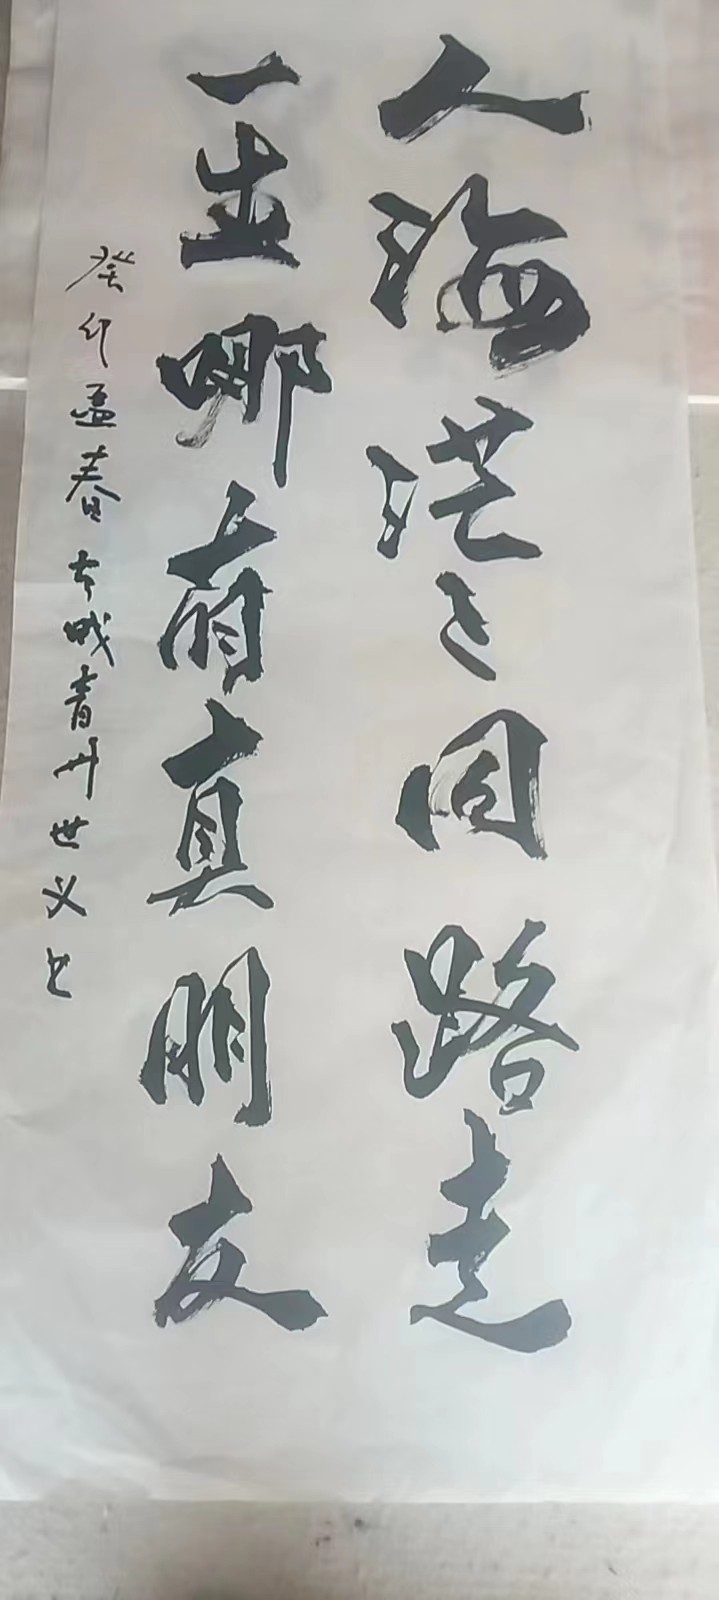 人海茫々同路走
一生哪有真朋友
癸卯孟春古城青年世义书